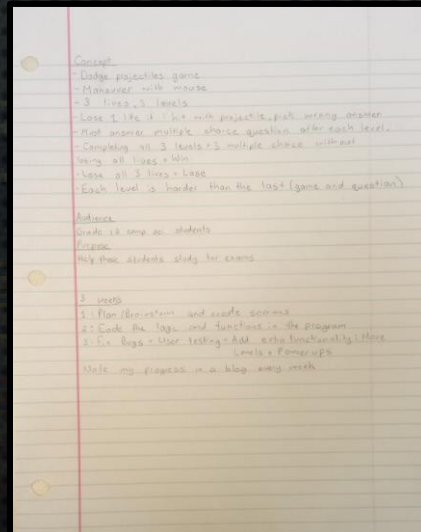 Concept
- Dodge projectiles game
- Maneuver with mouse
- 3 lives, 3 levels
- Lose 1 life if hit with projectile, pick wrong answer
- Must answer multiple choice question after each level.
- Completing all 3 levels + 3 multiple choice without
losing all lives = Win
- Lose all 3 lives = Lose
- Each level is harder than the last (game and question)
Audience
Grade 12 comp sci students
Purpose
Help these students study for exams
3 weeks
1: Plan/Brainstorm and create screens
2: Code the logic and functions in the program
3: Fix Bugs + User testing + Add extra functionality: More
Levels + Powerups
Note my progress in a blog every week